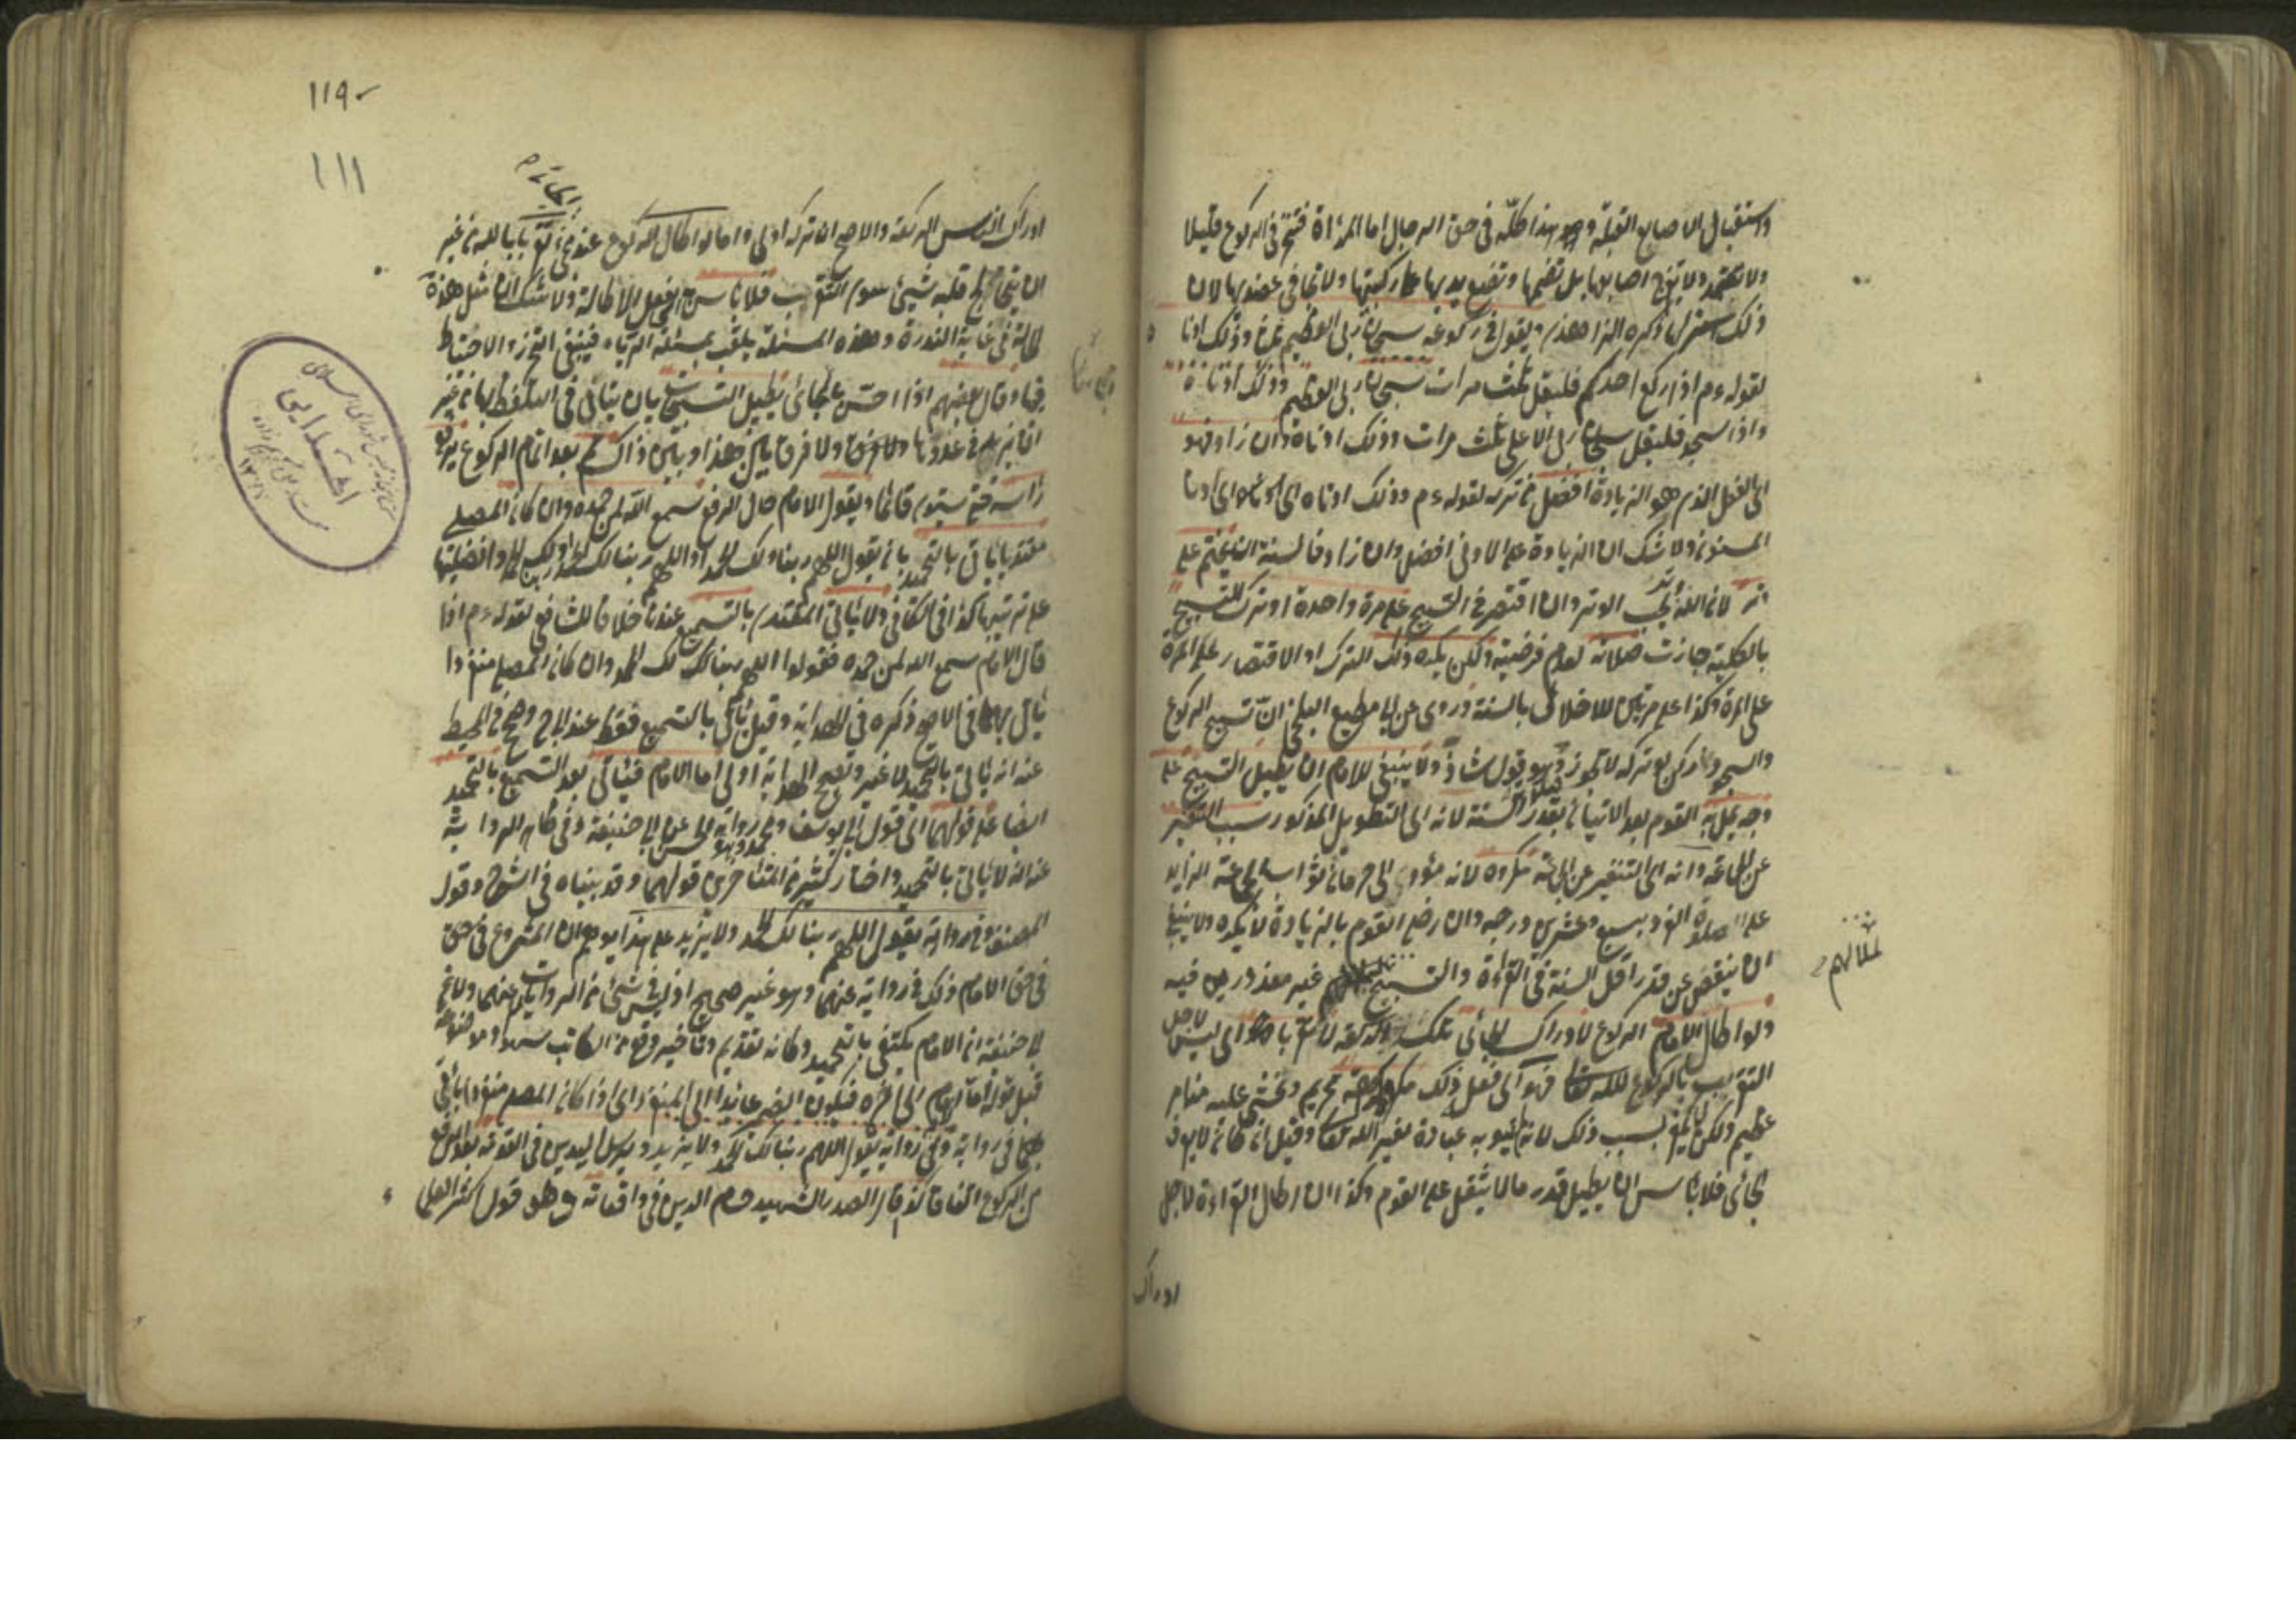 واستقبال الاصابع القبلة وهو هذا كلّه في حق الرجال اما المرأة فتنحنى في الركوع قليلا
ولا تعتمد ولا تفرج اصابعها بل تضمها وتضع يديها على ركبتيها ولا تجافى عضديها لان
ذلك استر لها ذكره الزاهدى ويقول في ركوعه سبحان ربى العظيم ثلثا وذلك ادناه
لقوله ءم اذا ركع احدكم فليقل ثلث مرات سبحان ربى العظيم وذلك ادناه
واذا سجد فليقل سبحان ربى الاعلى ثلث مرات وذلك ادناه وان زاد فهو
اى الفعل الذى هو الزيادة افضل من تركه لقوله ءم وذلك ادناه اى ادنى
المسنون ولا شك ان الزيادة على الادنى افضل وان زاد فالسنة ان يختم على
وتر لان الله وتر يحب الوتر وان اقتصر في التسبيح على مرة واحدة او ترك التسبيح
بالكلية جازت صلاته لعدم فرضيته ولكن يكره ذلك الترك او الاقتصار على المرة
على المرة وكذا على مرتين للاخلال بالسنة وروى عن ابى مطيع البلخى انّ تسبيح الركوع
والسجود ركن لو تركه لا تجوز وهو قول شاذّ ولا ينبغى للامام ان يطيل التسبيح على
وجه يمل به القوم بعد الاتيان بقدر السنة لانه اى التطويل المذكور سبب التنفير
عن الجماعة وانه اى التنفير عن الجماعة مكروه لانه مؤد الى حرمان ثواب الجماعة الزايد
على صلوة الفرد بسبع وعشرين درجه وان رضى القوم بالزيادة لا يكره ولا ينبغى
ان ينقص عن قدر اقل السنة في القراءة والتسبيح غير معذورين فيه
لملالهم
ولو اطال الامام الركوع لادراك الجائى تلك الركعة لا تقربا اى ليس لاجل
التقرب بالركوع لله تعالى فهو اى فعل ذلك مكروه كراهة تحريم ويخشى عليه منه امر
عظيم ولكن لا يكفر بسبب ذلك لانه لم ينو به عبادة لغير الله تعالى وقيل ان كان لا يعرف
الجائى فلا بأس ان يطيل قدر مالا يثقل على القوم وكذا ان اطال القراءة لاجل
ادراك
١١٩
١١١
ادراك الناس الركعة والاصح ان تركه اولى واما لو اطال الركوع عند مجئ الجائى تقربا بالله من غير
ان يتخالج قلبه شيئ سوى التقرب فلا باس به اى بفعل الاطالة ولا شك ان مثل هذه
الحالة في غاية الندرة وهذه المسئلة يلقب بمسئلة الرياء فينبغى التحرز والاحتياط
فيها وقال بعضهم اذا احسّ بالجائى يطيل التسبيحات بان يتانى في التلفظ بها من غير
ان يزيد في عددها ولا فرق بين هذا وبين ذاك ثم بعد اتمام الركوع يرفع
رأسه حتى يستوى قائما ويقول الامام حال الرفع سمع الله لمن حمده وان كان المصلى
مقتديا ياتى بالتحميد بان يقول اللهم ربنا ولك الحمد او اللهم ربنا لك الحمد او ربنا لك الحمد وافضليتها
على ترتيبها كذا في الكافى ولا ياتى المقتدى بالتسميع عندنا خلافا للشافعى لقوله ءم اذا
قال الامام سمع الله لمن حمده فقولوا اللهم ربنا لك الحمد وان كان المصلى منفردا
ياتى بهما في الاصح ذكره في الهداية وقيل ياتى بالتسميع فقط عند ابى ح وصحح في المحيط
عنه انه ياتى بالتحميد لا غير وتصحيح الهداية اولى اما الامام فياتى بعد التسميع بالتحميد
ايضا على قولهما اى قول ابى يوسف ومحمد وهو رواية الحسن عن ابى حنيفة وفى ظاهر الرواية
عنه انه لا ياتى بالتحميد واختار كثير من المتأخرين قولهما وقد بيناه في الشرح وقول
المصنف وفى رواية يقول اللهم ربنا لك الحمد ولا يزيد على هذا يوهم ان المشروع في حق
في حق الامام ذلك في رواية عنهما وهو غير صحيح اذ ليس في شئ من الروايات عنهما ولا عن
ابى حنيفة ان الامام يكتفى بالتحميد وكانه تقديم وتاخير وقع من الكاتب سهوا وموضعه
قبل قوله اما الامام الى اخره فيكون الضمير عائدا الى المنفرد اى اذا كان المصلى منفردا ياتى
بهما في رواية وفى رواية يقول اللهم ربنا لك الحمد ولا يزيد ويرسل اليدين في القومة بعد الرفع
من الركوع اتفاقا كذا قال الصدر الشهيد حسام الدين في واقعاته وهو قول اكثر العلماء
اهدايى